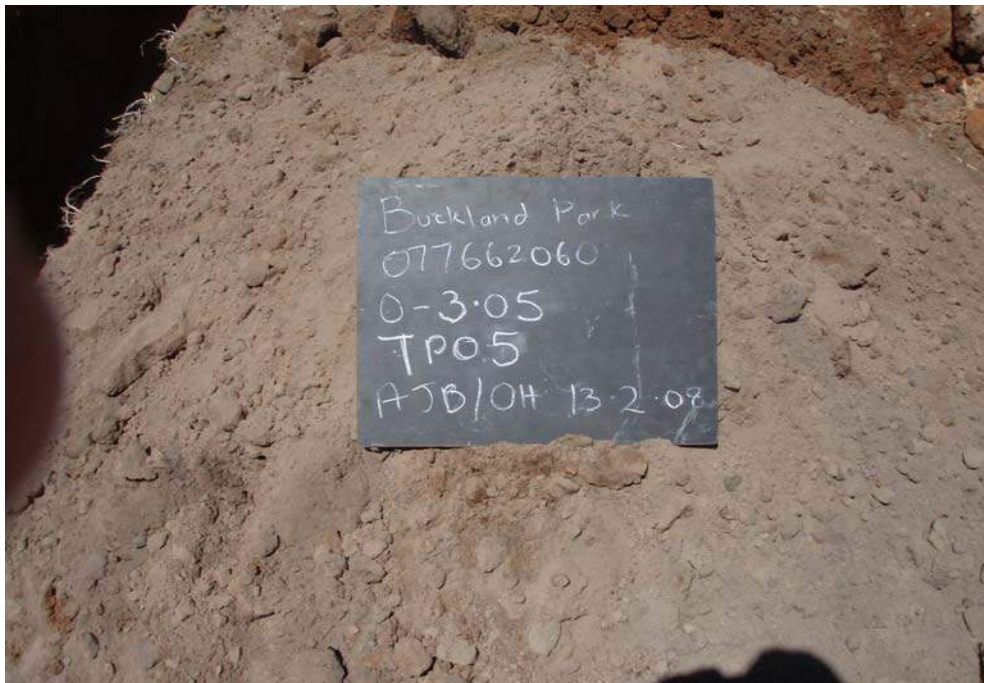 Buckland Park
077662060
0-3.05
TP05
AJB/OH 13.2.08